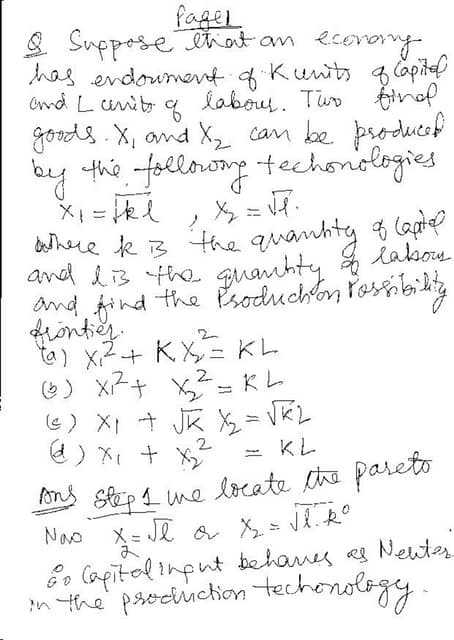 Page1
Q Suppose that an economy
has endowment of K units of Capital
and L units of labour. Two final
goods. X₁ and X₂ can be produced
by the following techonologies
X₁ = √kl , X₂ = √l.
where k is the quantity of Capital
and l is the quantity of labour
and find the Production Possibility
frontier.
(a) X₁² + K X₂² = KL
(b) X₁² + X₂² = KL
(c) X₁ + √K X₂ = √KL
(d) X₁ + X₂² = KL
Ans Step 1 we locate the pareto
Now X₂ = √l or X₂ = √l.k⁰
So Capital input behaves as Neuter
in the production techonology.